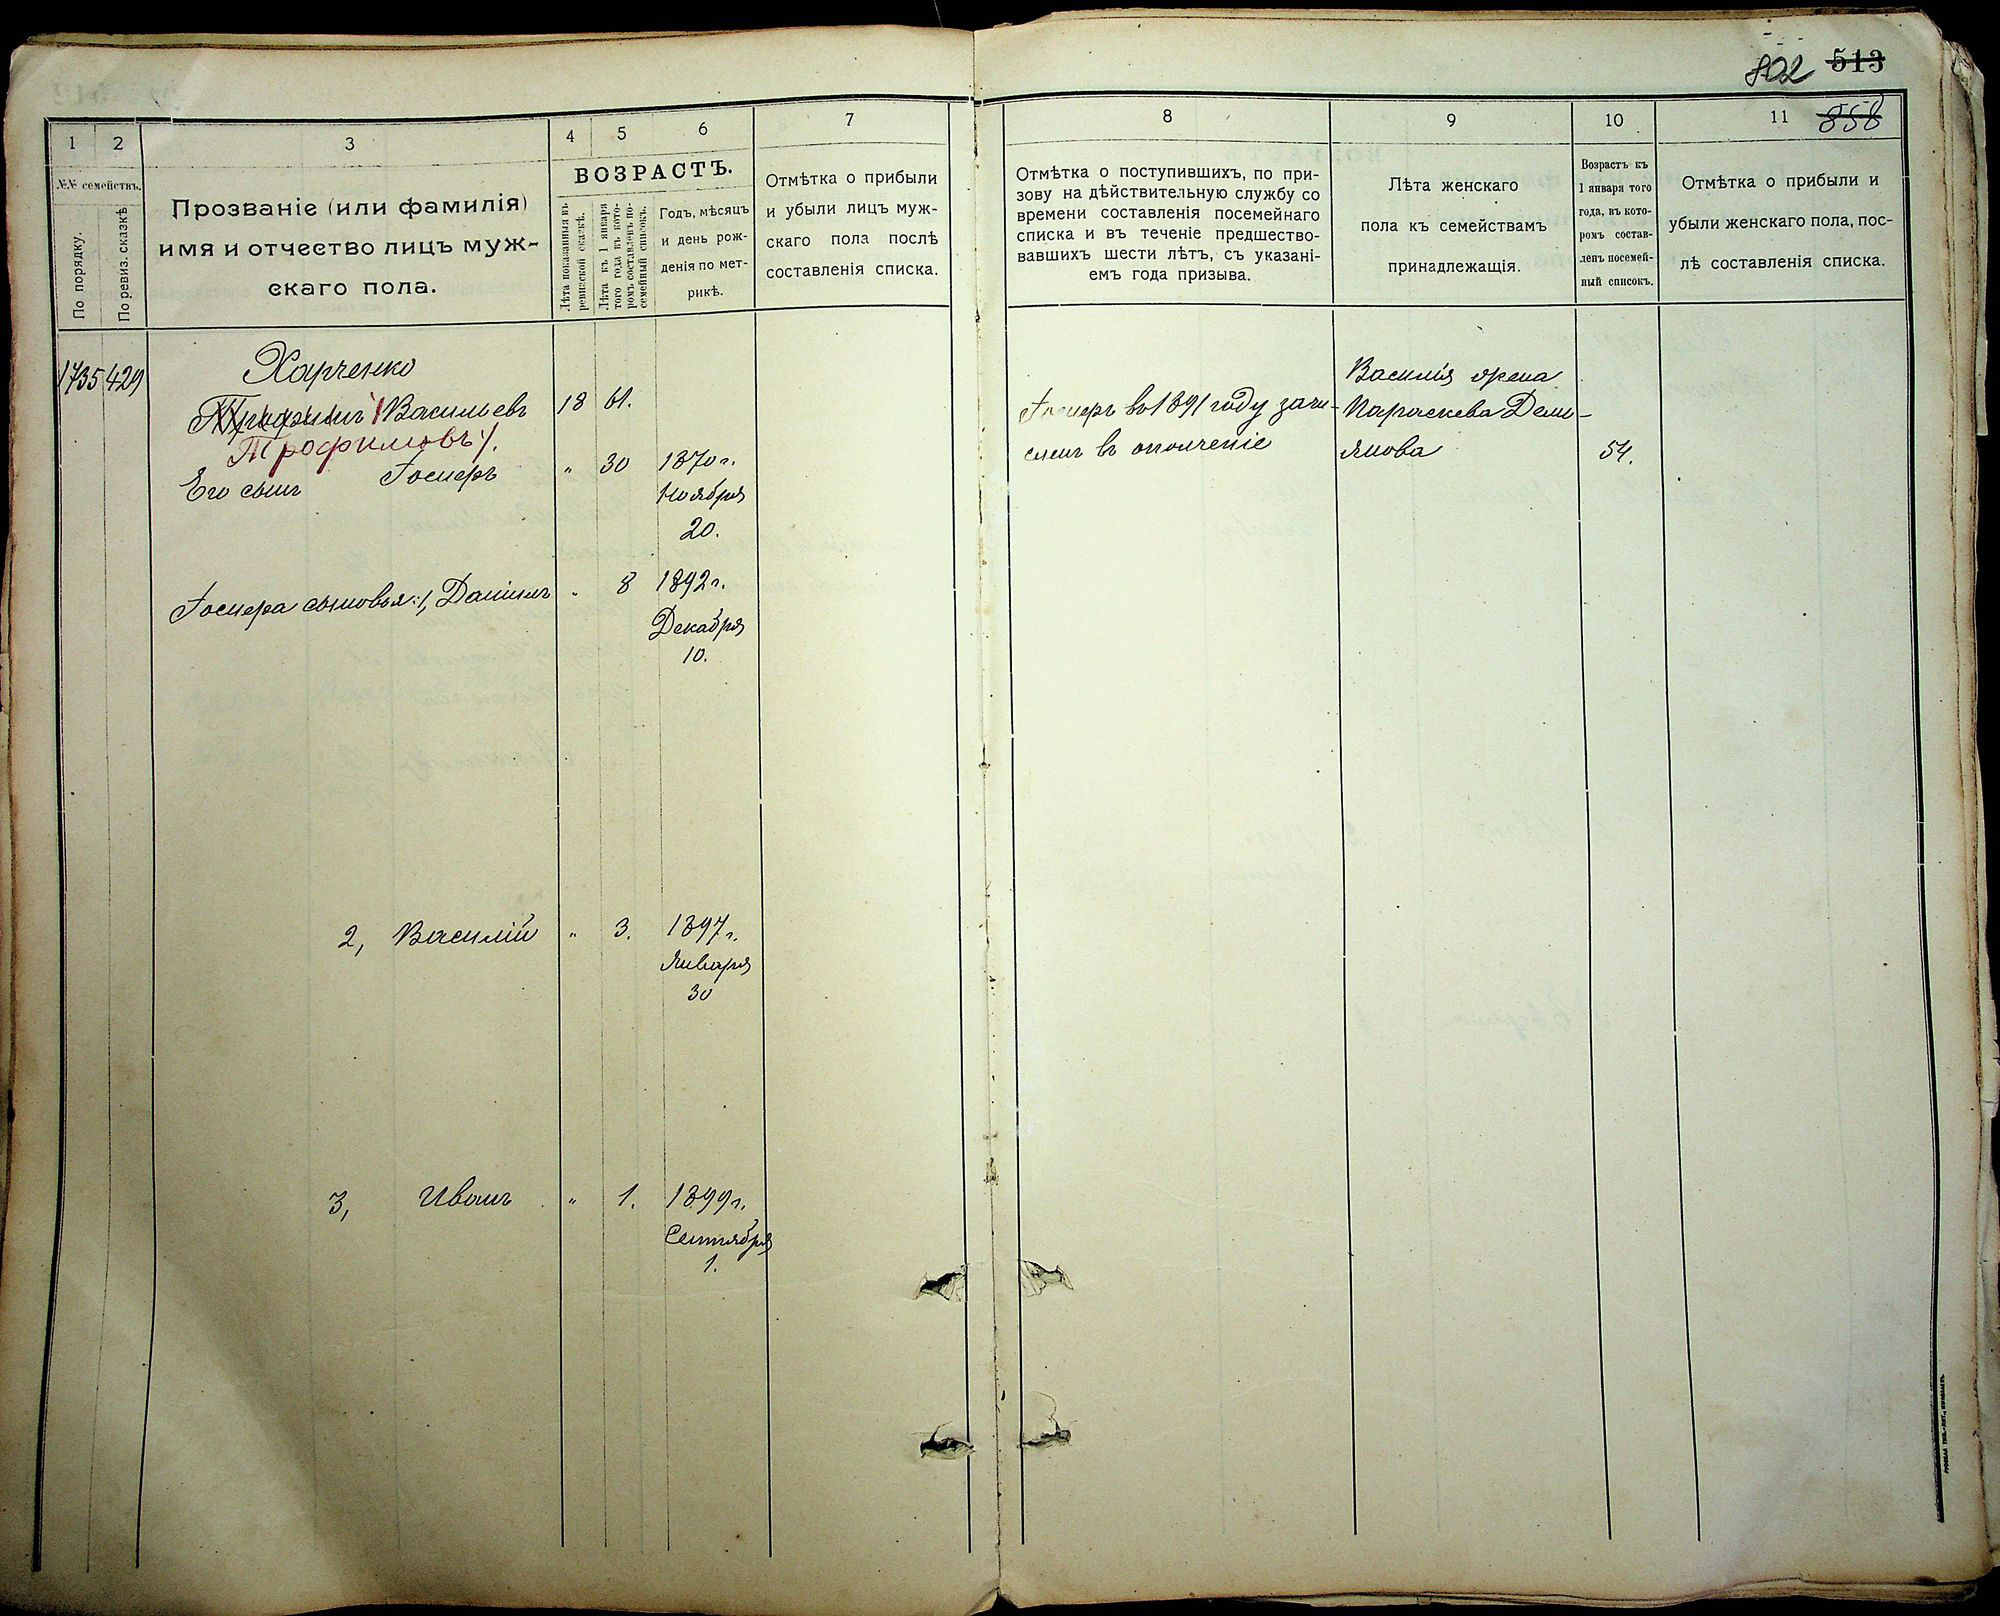 802 513
1 2 3 4 5 6 7
№№ семействъ.
По порядку.
По ревиз. сказкѣ
Прозваніе (или фамилія)
имя и отчество лицъ муж-
скаго пола.
ВОЗРАСТЪ.
Лѣта показанныя въ
ревизской сказкѣ.
Лѣта къ 1 января
того года въ кото-
ромъ составленъ по-
семейный списокъ.
Годъ, мѣсяцъ
и день рож-
денія по мет-
рикѣ.
Отмѣтка о прибыли
и убыли лицъ муж-
скаго пола послѣ
составленія списка.
1735 429 Харченко
Трофимъ Васильевъ 18 61.
Трофимовъ
Его сынъ Іосиръ " 30 1870 г.
Ноября
20.
Іосира сыновья: 1, Даніилъ " 8 1892 г.
Декабря
10.
2, Василій " 3. 1897 г.
Января
30
3, Иванъ " 1. 1899 г.
Сентября
1.
8 9 10 11 858
Отмѣтка о поступившихъ, по при-
зову на дѣйствительную службу со
времени составленія посемейнаго
списка и въ теченіе предшество-
вавшихъ шести лѣтъ, съ указані-
емъ года призыва.
Лѣта женскаго
пола къ семействамъ
принадлежащія.
Возрастъ къ
1 января того
года, въ кото-
ромъ состав-
ленъ посемей-
ный списокъ.
Отмѣтка о прибыли и
убыли женскаго пола, пос-
лѣ составленія списка.
Іосиръ въ 1891 году зачи-
сленъ въ ополченіе
Василія жена
Параскева Деми-
янова 54.